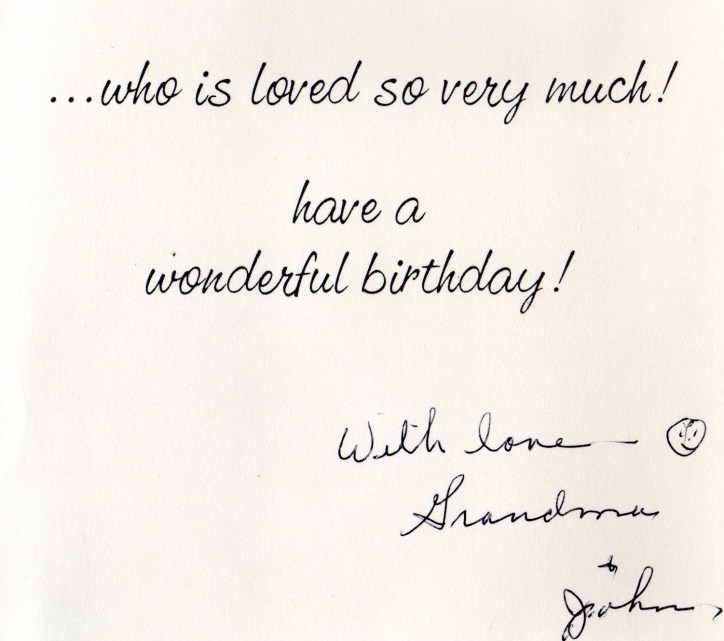 ...who is loved so very much!
have a
wonderful birthday!
With love —
Grandma
&
John